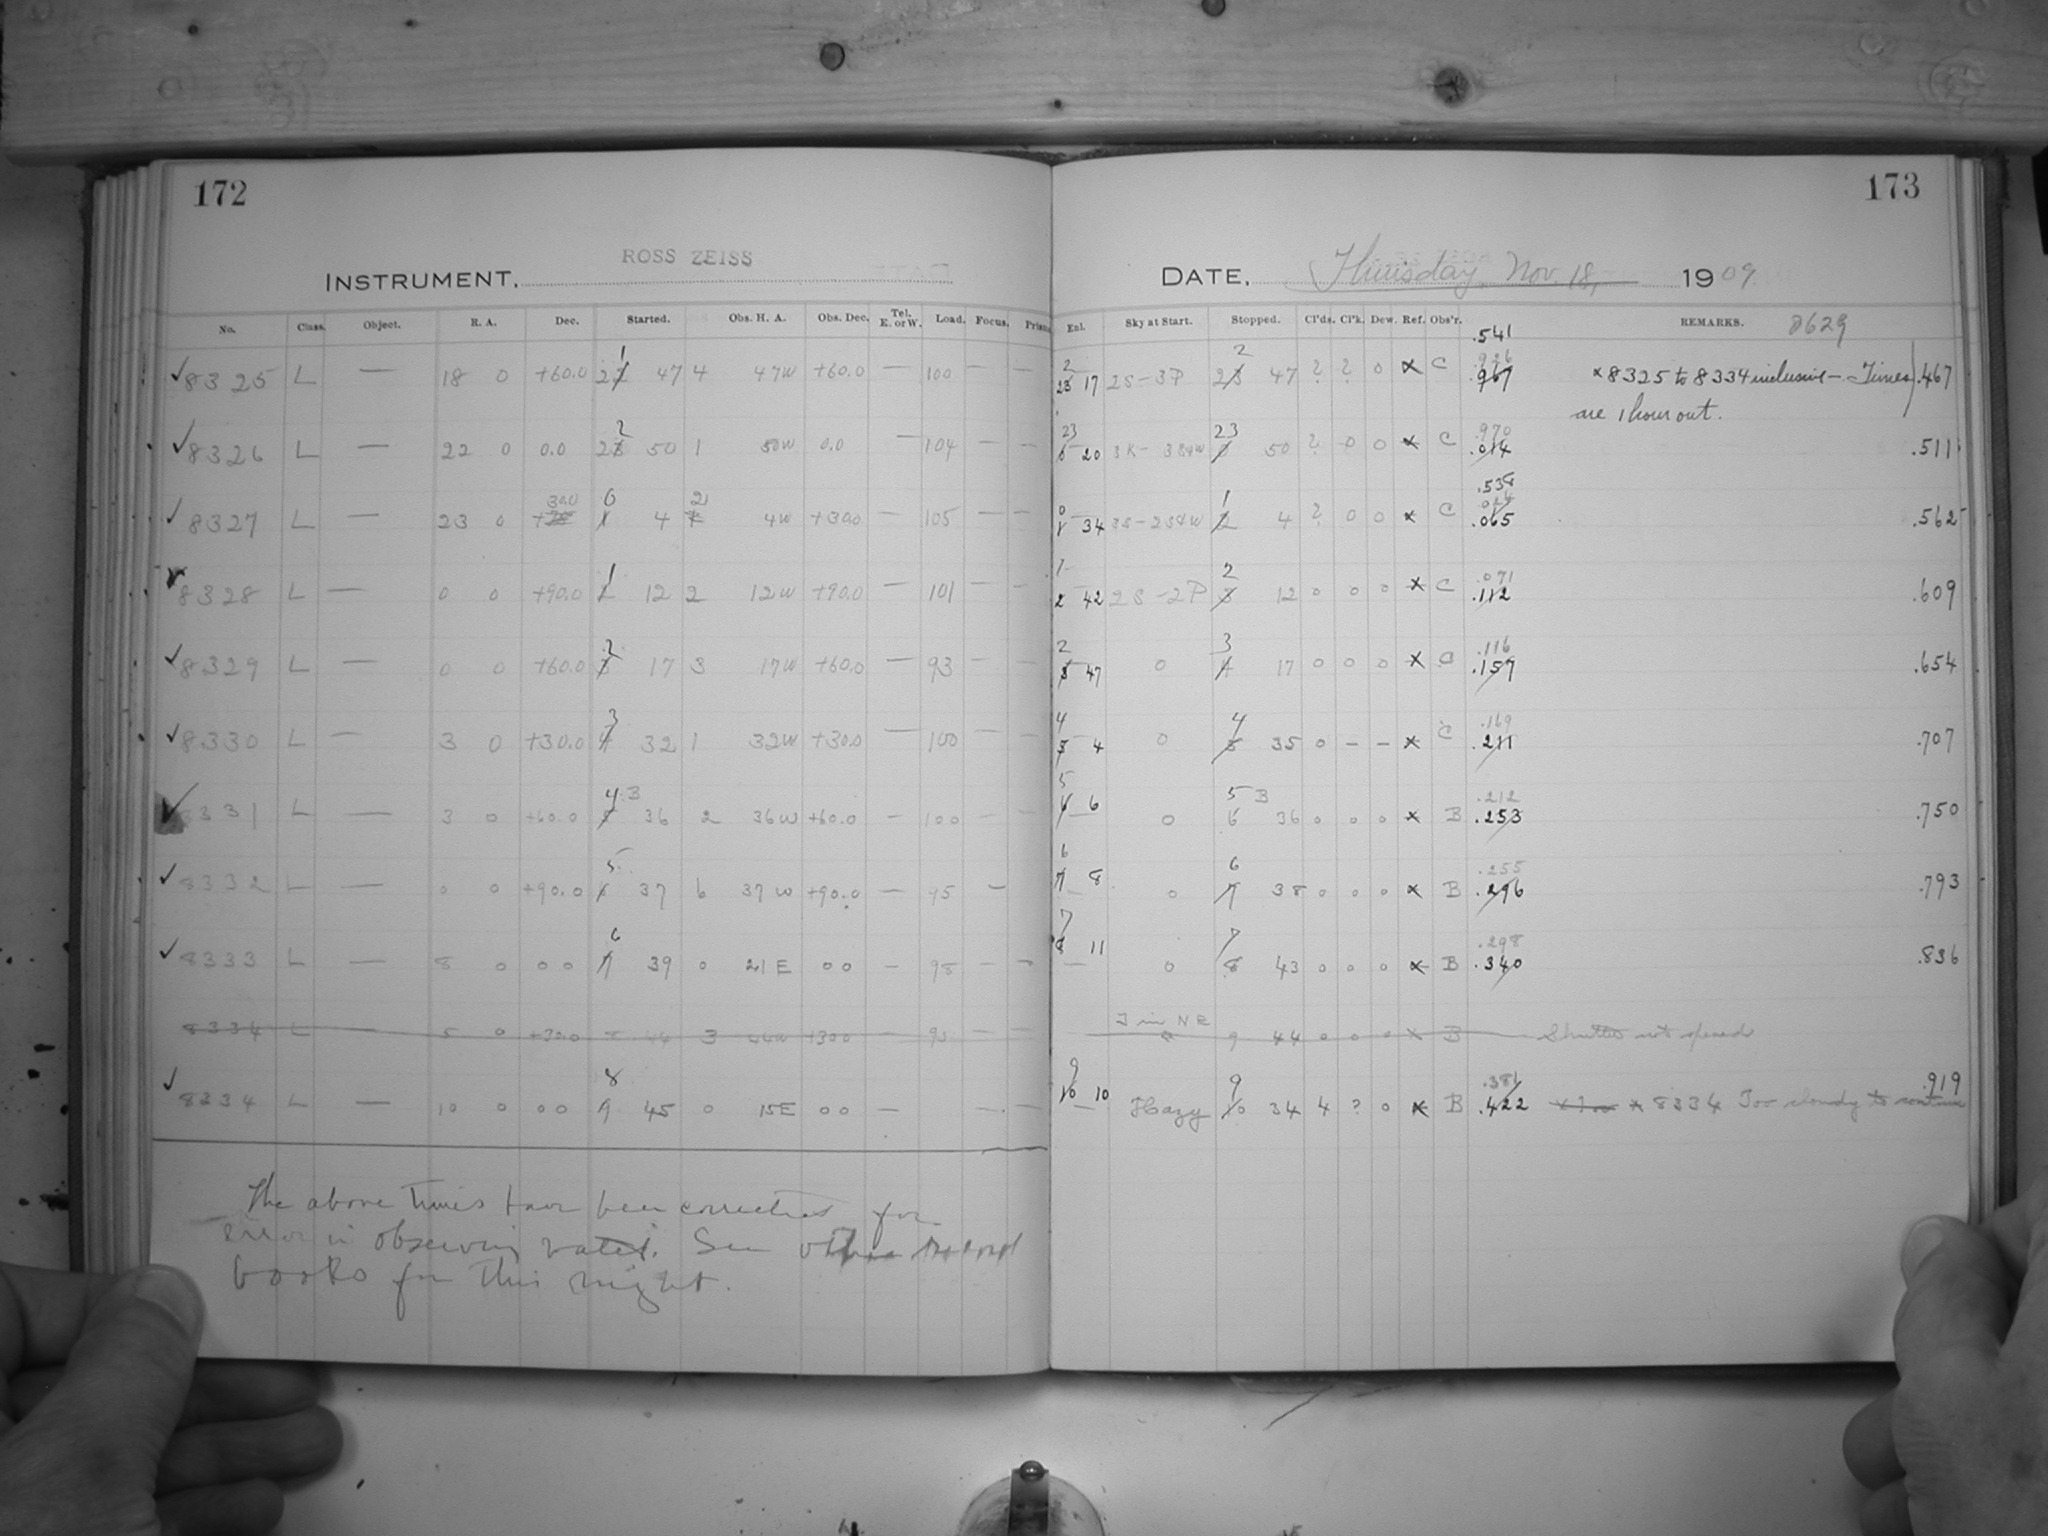 172
173
ROSS ZEISS
INSTRUMENT.
DATE, Thursday, Nov. 18, 1909
No. Class. Object. R. A. Dec. Started. Obs. H. A. Obs. Dec. Tel. E. or W. Load. Focus. Prism
Enl. Sky at Start. Stopped. Cl'ds. Cl'k. Dew. Ref. Obs'r. REMARKS. 8629
8325 L — 18 0 +60.0 47 4 47W +60.0 — 100 — —
17 2S-3P 47 ? ? 0 x C .541 .967 x 8325 to 8334 inclusive — Times .467
are 1 hour out.
8326 L — 22 0 0.0 50 1 50W 0.0 — 104 — —
23 20 23 50 ? 0 0 x C .970 .014 .511
8327 L — 23 0 30.0 0 4 2 4W +30.0 — 105 — —
0 34 1 4 ? 0 0 x C .538 .065 .562
8328 L — 0 0 +90.0 1 12 2 12W +90.0 — 101 — —
1 42 2S-2P 2 12 0 0 0 x C .071 .112 .609
8329 L — 0 0 +60.0 2 17 3 17W +60.0 — 93 — —
2 47 0 3 17 0 0 0 x C .116 .159 .654
8330 L — 3 0 +30.0 3 32 1 32W +30.0 — 100 — —
4 4 0 4 35 0 — — x C .169 .211 .707
8331 L — 3 0 +60.0 4 B 36 2 36W +60.0 — 100 — —
5 6 0 5 B 36 0 0 0 x B .212 .253 .750
8332 L — 0 0 +90.0 5 37 6 37W +90.0 — 95 —
6 8 0 6 38 0 0 0 x B .255 .296 .793
8333 L — 8 0 0 0 6 39 0 21E 0 0 — 98 — —
7 11 0 7 43 0 0 0 x B .298 .340 .836
8334 L — 5 0 +30.0 44 3 44W +30.0 — 95 — —
I in NE 9 44 0 0 0 x B Shutter not opened
8334 L — 10 0 0 0 8 9 45 0 15E 0 0 — — —
9 10 10 Hazy 9 10 34 4 ? 0 x B .381 .422 x 8334 Too cloudy to continue .919
The above times have been corrected for
error in observing watch. See other record
books for this night.